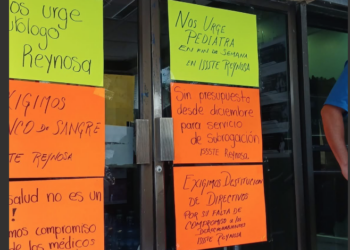 os urge
ólogo
Reynosa
XIGIMOS
NCO de SANGRE
SSTE REYNOSA
Salud no es un
!
mos compromiso
de los médicos
Nos Urge
PEDIATRA
EN FIN DE SEMANA
EN ISSSTE REYNOSA
Sin presupuesto
desde diciembre
para servicio
de Subrogación
ISSSTE REYNOSA
EXIGIMOS DESTITUCION
DE DIRECTIVOS
POR SU FALTA DE
COMPROMISO A LOS
DERECHOHABIENTES
ISSSTE REYNOSA